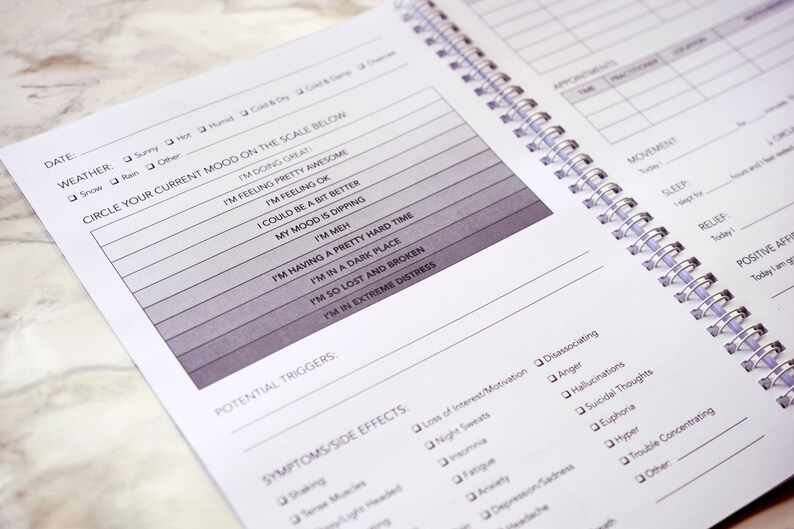 DATE:
WEATHER: ❑ Sunny ❑ Hot ❑ Humid ❑ Cold & Dry ❑ Cold & Damp ❑ Overcast
❑ Snow ❑ Rain ❑ Other:
CIRCLE YOUR CURRENT MOOD ON THE SCALE BELOW:
I'M DOING GREAT!
I'M FEELING PRETTY AWESOME
I'M FEELING OK
I COULD BE A BIT BETTER
MY MOOD IS DIPPING
I'M MEH
I'M HAVING A PRETTY HARD TIME
I'M IN A DARK PLACE
I'M SO LOST AND BROKEN
I'M IN EXTREME DISTRESS
POTENTIAL TRIGGERS:
SYMPTOMS/SIDE EFFECTS:
❑ Shaking
❑ Tense Muscles
Light Headed
❑ Loss of Interest/Motivation
❑ Night Sweats
❑ Insomnia
❑ Fatigue
❑ Anxiety
❑ Depression/Sadness
Headache
❑ Disassociating
❑ Anger
❑ Hallucinations
❑ Suicidal Thoughts
❑ Euphoria
❑ Hyper
❑ Trouble Concentrating
❑ Other:
APPOINTMENTS
TIME PRACTITIONER LOCATION
MOVEMENT:
Today I for minutes
SLEEP:
I slept for hours and I feel rested
RELIEF:
Today I
POSITIVE AFFIRM
Today I am